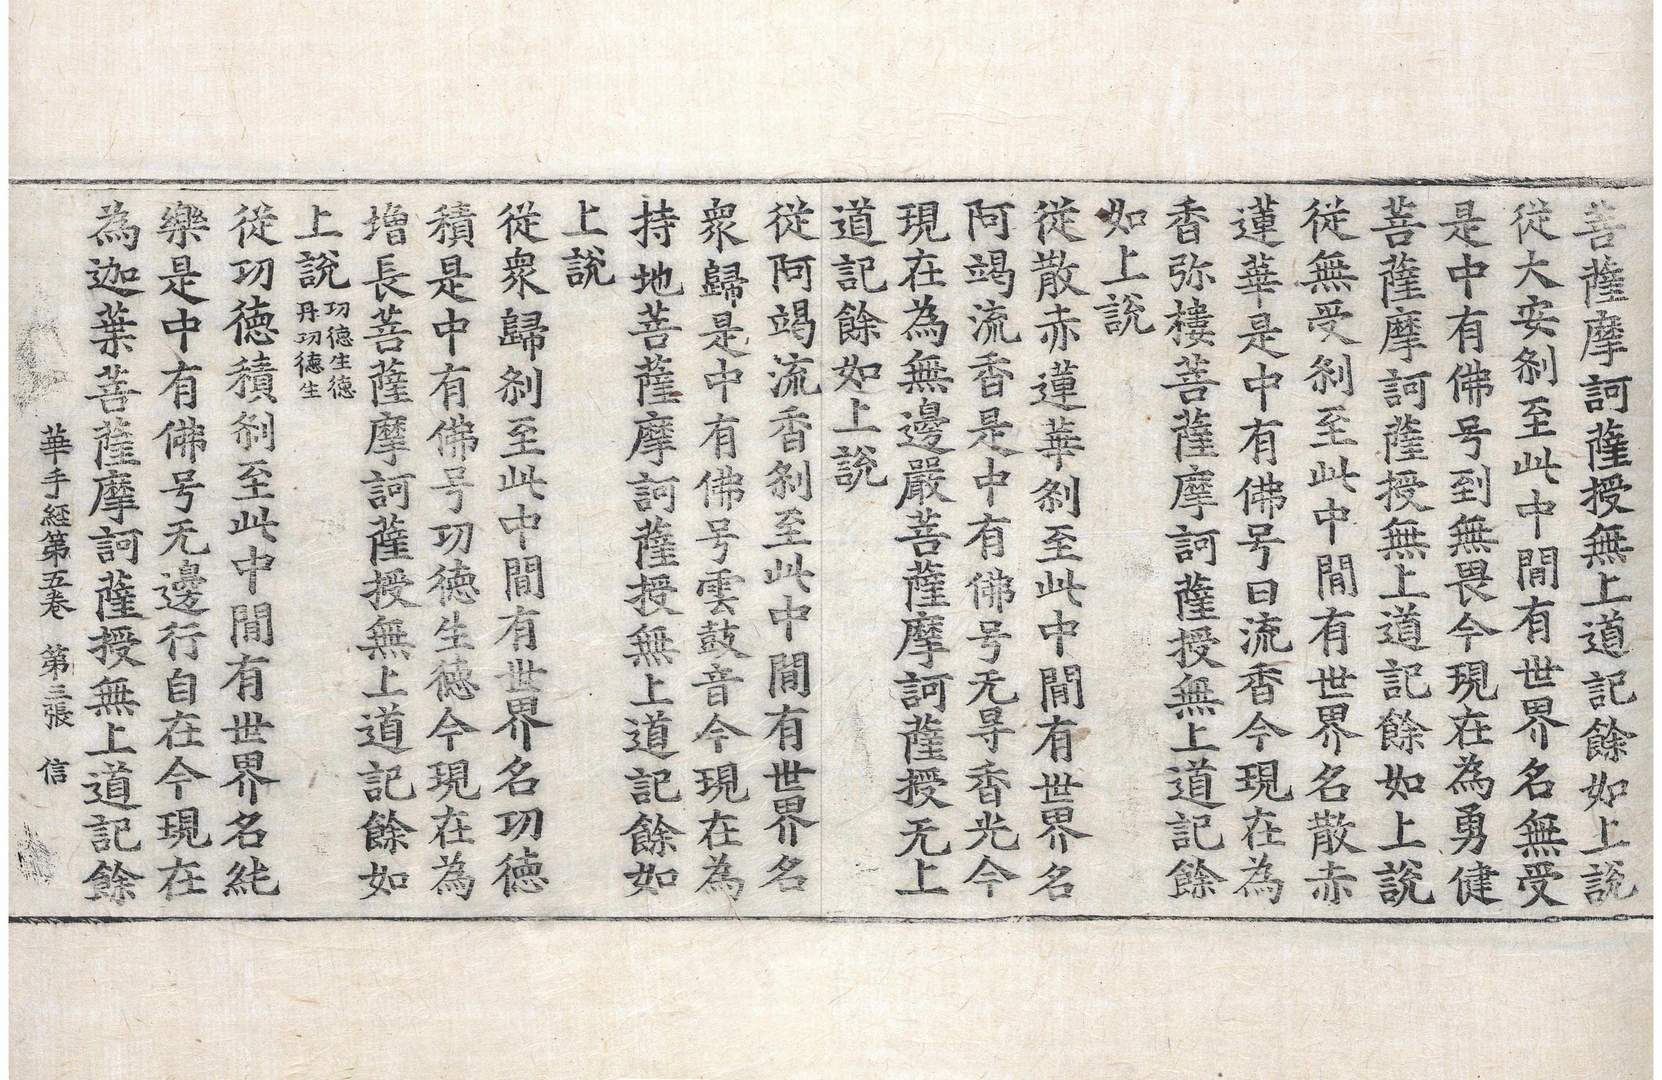 菩薩摩訶薩授無上道記餘如上說
從大安刹至此中間有世界名無受
是中有佛号到無畏今現在為勇健
菩薩摩訶薩授無上道記餘如上說
從無受刹至此中間有世界名散赤
蓮華是中有佛号曰流香今現在為
香弥樓菩薩摩訶薩授無上道記餘
如上說
從散赤蓮華刹至此中間有世界名
阿竭流香是中有佛号无㝵香光今
現在為無邊嚴菩薩摩訶薩授无上
道記餘如上說
從阿竭流香刹至此中間有世界名
衆歸是中有佛号雲鼓音今現在為
持地菩薩摩訶薩授無上道記餘如
上說
從衆歸刹至此中間有世界名功德
積是中有佛号功德生德今現在為
增長菩薩摩訶薩授無上道記餘如
上說功德生德
丹功德生
從功德積刹至此中間有世界名純
樂是中有佛号无邊行自在今現在
為迦葉菩薩摩訶薩授無上道記餘
華手經第五卷 第三張 信